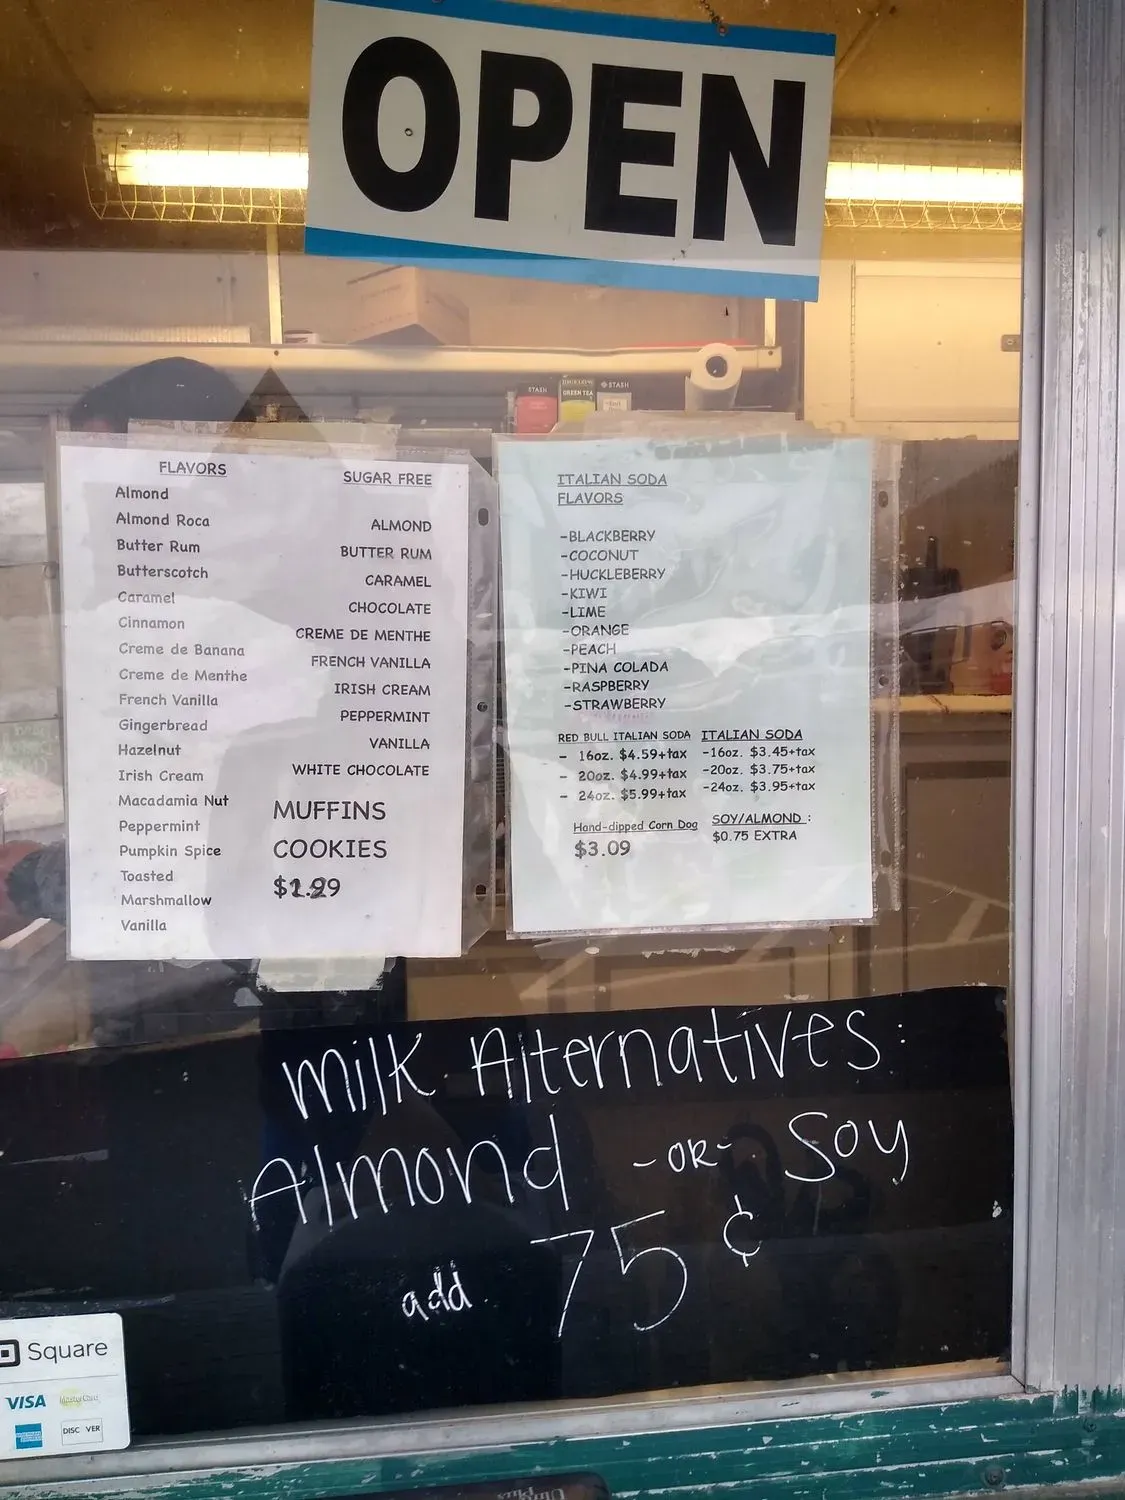 OPEN
STASH
BIGELOW
GREEN TEA
STASH
FLAVORS
Almond
Almond Roca
Butter Rum
Butterscotch
Caramel
Cinnamon
Creme de Banana
Creme de Menthe
French Vanilla
Gingerbread
Hazelnut
Irish Cream
Macadamia Nut
Peppermint
Pumpkin Spice
Toasted
Marshmallow
Vanilla
SUGAR FREE
ALMOND
BUTTER RUM
CARAMEL
CHOCOLATE
CREME DE MENTHE
FRENCH VANILLA
IRISH CREAM
PEPPERMINT
VANILLA
WHITE CHOCOLATE
MUFFINS
COOKIES
ITALIAN SODA
FLAVORS
-BLACKBERRY
-COCONUT
-HUCKLEBERRY
-KIWI
-LIME
-ORANGE
-PEACH
-PINA COLADA
-RASPBERRY
-STRAWBERRY
RED BULL ITALIAN SODA
- 16oz. $4.59+tax
- 20oz. $4.99+tax
- 24oz. $5.99+tax
ITALIAN SODA
-16oz. $3.45+tax
-20oz. $3.75+tax
-24oz. $3.95+tax
Hand-dipped Corn Dog
$3.09
SOY/ALMOND :
$0.75 EXTRA
Milk Alternatives:
Almond -OR- Soy
add 75¢
Square
VISA MasterCard
DISCOVER